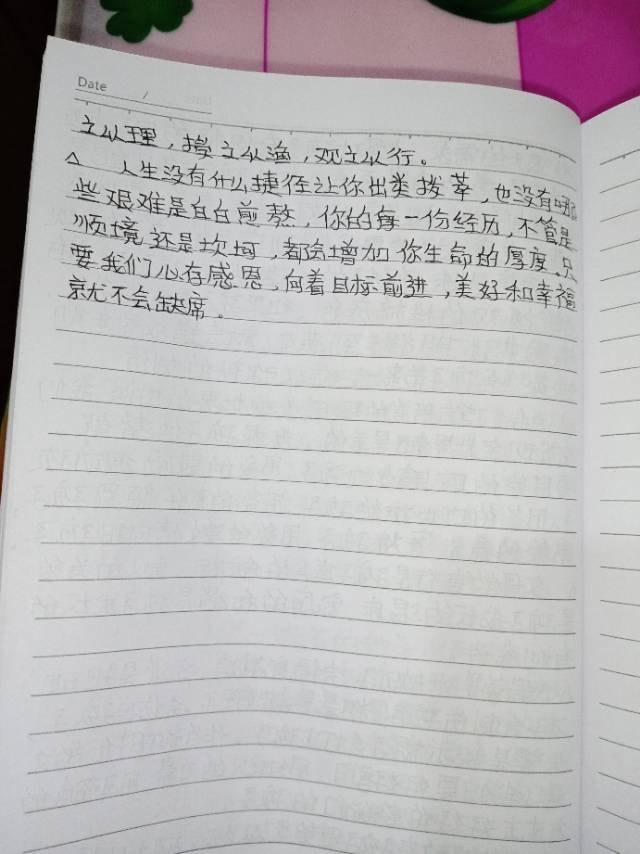 Date /
立以理，接立以渔，观立以行。
△ 人生没有什么捷径让你出类拔萃，也没有哪
些艰难是白白煎熬，你的每一份经历，不管是
顺境还是坎坷，都会增加你生命的厚度。只
要我们心存感恩，向着目标前进，美好和幸福
就不会缺席。